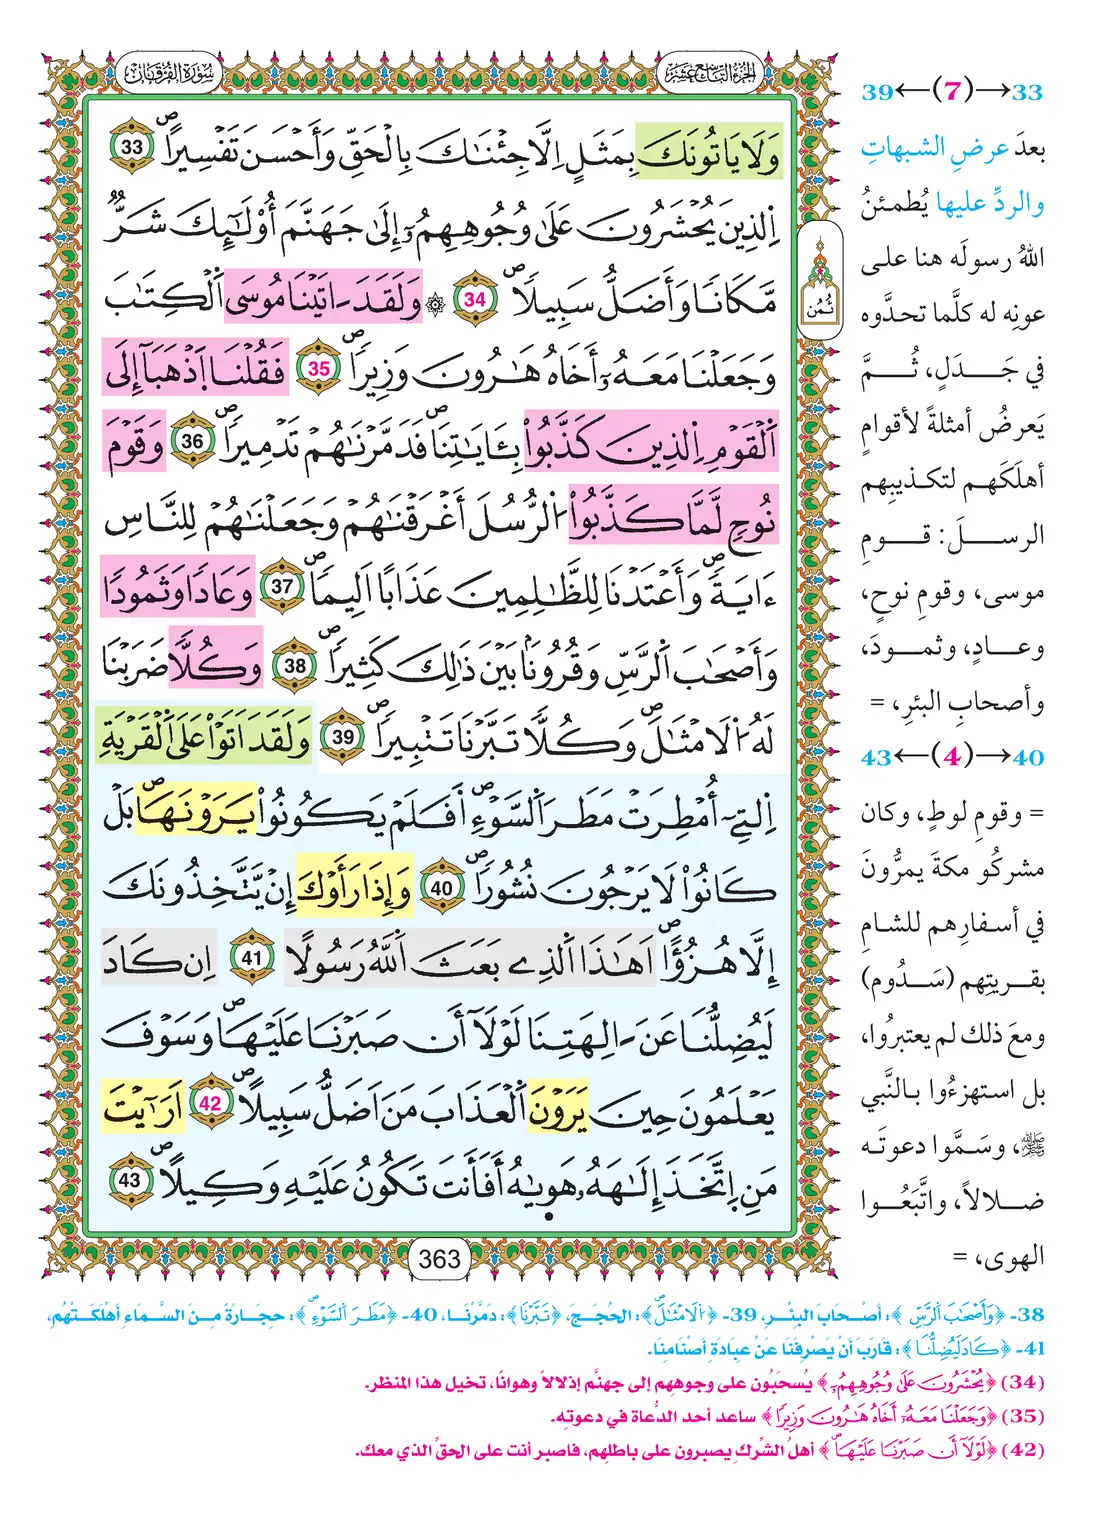 الجزء التاسع عشر
سورة الفرقان
وَلَا يَاتُونَكَ بِمَثَلٍ اِلَّا جِئْنَٰكَ بِالْحَقِّ وَأَحْسَنَ تَفْسِيراًۖ 33
اِ۬لذِينَ يُحْشَرُونَ عَلَىٰ وُجُوهِهِمُۥٓ إِلَىٰ جَهَنَّمَ أُوْلَٰٓئِكَ شَرّٞ
مَّكَاناٗ وَأَضَلُّ سَبِيلاٗۖ 34 ۞ وَلَقَدَ اٰتَيْنَا مُوسَى اَ۬لْكِتَٰبَ
وَجَعَلْنَا مَعَهُۥٓ أَخَاهُ هَٰرُونَ وَزِيراٗۖ 35 فَقُلْنَا اَ۪ذْهَبَآ إِلَى
اَ۬لْقَوْمِ اِ۬لذِينَ كَذَّبُواْ بِـَٔايَٰتِنَاۖ فَدَمَّرْنَٰهُمْ تَدْمِيراٗۖ 36 وَقَوْمَ
نُوحٖ لَّمَّا كَذَّبُواْ اُ۬لرُّسُلَ أَغْرَقْنَٰهُمْ وَجَعَلْنَٰهُمْ لِلنَّاسِ
ءَايَةٗۖ وَأَعْتَدْنَا لِلظَّٰلِمِينَ عَذَاباً اَلِيماٗۖ 37 وَعَاداٗ وَثَمُوداٗ
وَأَصْحَٰبَ اَ۬لرَّسِّ وَقُرُوناَۢ بَيْنَ ذَٰلِكَ كَثِيراٗۖ 38 وَكُلّاٗ ضَرَبْنَا
لَهُ اُ۬لَامْثَٰلَۖ وَكُلّاٗ تَبَّرْنَا تَتْبِيراٗۖ 39 وَلَقَدَ اَتَوْاْ عَلَى اَ۬لْقَرْيَةِ
اِ۬لتِےٓ أُمْطِرَتْ مَطَرَ اَ۬لسَّوْءِۖ اَفَلَمْ يَكُونُواْ يَرَوْنَهَاۖ بَلْ
كَانُواْ لَا يَرْجُونَ نُشُوراٗۖ 40 وَإِذَا رَأَوْكَ إِنْ يَّتَّخِذُونَكَ
إِلَّا هُزُؤاًۖ اَهَٰذَا اَ۬لذِے بَعَثَ اَ۬للَّهُ رَسُولاً 41 اِن كَادَ
لَيُضِلُّنَا عَنَ اٰلِهَتِنَا لَوْلَآ أَن صَبَرْنَا عَلَيْهَاۖ وَسَوْفَ
يَعْلَمُونَ حِينَ يَرَوْنَ اَ۬لْعَذَابَ مَنَ اَضَلُّ سَبِيلاًۖ 42 اَرَٰٓيْتَ
مَنِ اِ۪تَّخَذَ إِلَٰهَهُۥ هَوِ۪يٰهُ أَفَأَنتَ تَكُونُ عَلَيْهِ وَكِيلاًۖ 43
363
ثُمُن
33→(7)←39
بعدَ عرضِ الشبهاتِ
والردِّ عليها يُطمئنُ
اللهُ رسولَه هنا على
عونِه له كلَّما تحدَّوه
في جَدَلٍ، ثُمَّ
يَعرضُ أمثلةً لأقوامٍ
أهلَكَهم لتكذيبِهم
الرسلَ: قومِ
موسى، وقومِ نوحٍ،
وعادٍ، وثمودَ،
وأصحابِ البئرِ، =
40→(4)←43
= وقومِ لوطٍ، وكان
مشركُو مكةَ يمرُّونَ
في أسفارِهم للشامِ
بقريتِهم (سَدُوم)
ومعَ ذلك لم يعتبرُوا،
بل استهزءُوا بالنَّبي
ﷺ، وسَمَّوا دعوتَه
ضلالاً، واتَّبَعُوا
الهوى، =
38- ﴿وَأَصْحَٰبَ اَ۬لرَّسِّ﴾: أصْحَابَ البِئْرِ، 39- ﴿اُ۬لَامْثَٰلَۖ﴾: الحُجَجَ، ﴿تَبَّرْنَا﴾: دَمَّرْنَا، 40- ﴿مَطَرَ اَ۬لسَّوْءِۖ﴾: حِجَارَةً مِنَ السَّمَاءِ أهْلَكَتْهُم،
41- ﴿كَادَ لَيُضِلُّنَا﴾: قَارَبَ أنْ يَصْرِفَنَا عَنْ عِبَادَةِ أصْنَامِنَا.
(34) ﴿يُحْشَرُونَ عَلَىٰ وُجُوهِهِمُۥٓ﴾ يُسحَبُون على وجوههم إلى جهنَّم إذلالاً وهوانًا، تخيل هذا المنظر.
(35) ﴿وَجَعَلْنَا مَعَهُۥٓ أَخَاهُ هَٰرُونَ وَزِيراٗ﴾ ساعد أحد الدُّعاة في دعوتِه.
(42) ﴿لَوْلَآ أَن صَبَرْنَا عَلَيْهَاۖ﴾ أهلُ الشِّركِ يصبرون على باطلِهم، فاصبر أنت على الحقِّ الذي معك.